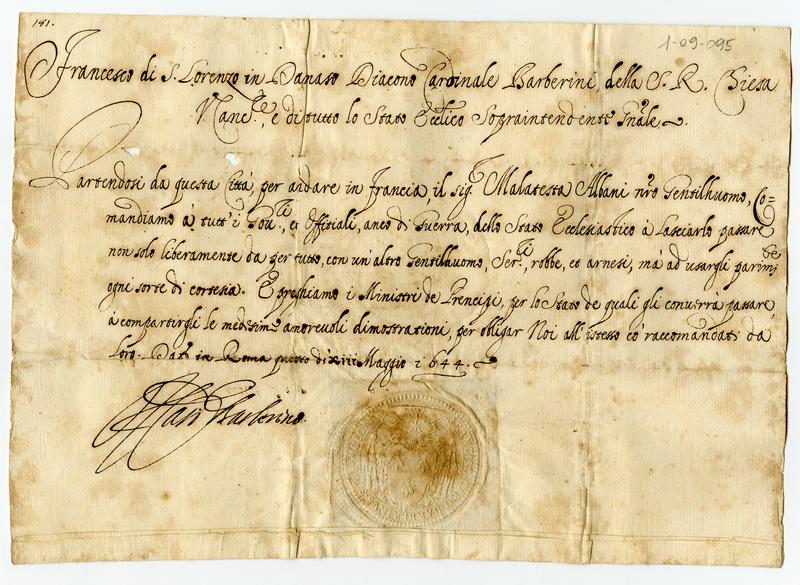 181.
1-09-095
Francesco di S. Lorenzo in Damaso Diacono Cardinale Barberini, della S. R. Chiesa
Vanc.re, e di tutto lo Stato Eccl.ico Sopraintendente Gn̄ale.
Partendosi da questa Città, per andare in Francia, il Sig.r Malatesta Albani nr̄o Gentilhuomo, Co=
mandiamo à tutt'i Gou.ri, et Offitiali, anco di Guerra, dello Stato Ecclesiastico à lasciarlo passare
non solo liberamente da per tutto, con un'altro Gentilhuomo, Ser.ri, robbe, et arnesi, mà ad usargli parim.te
ogni sorte di cortesia. E preghiamo i Ministri de Prencipi, per lo Stato de quali gli conuerrà passare,
à compartirgli le medesime amoreuoli dimostrationi, per obligar Noi all'istesso co' raccomandati da
loro. Dat. in Roma questo dì xiii Maggio 1644.
Il Card. Barberino.